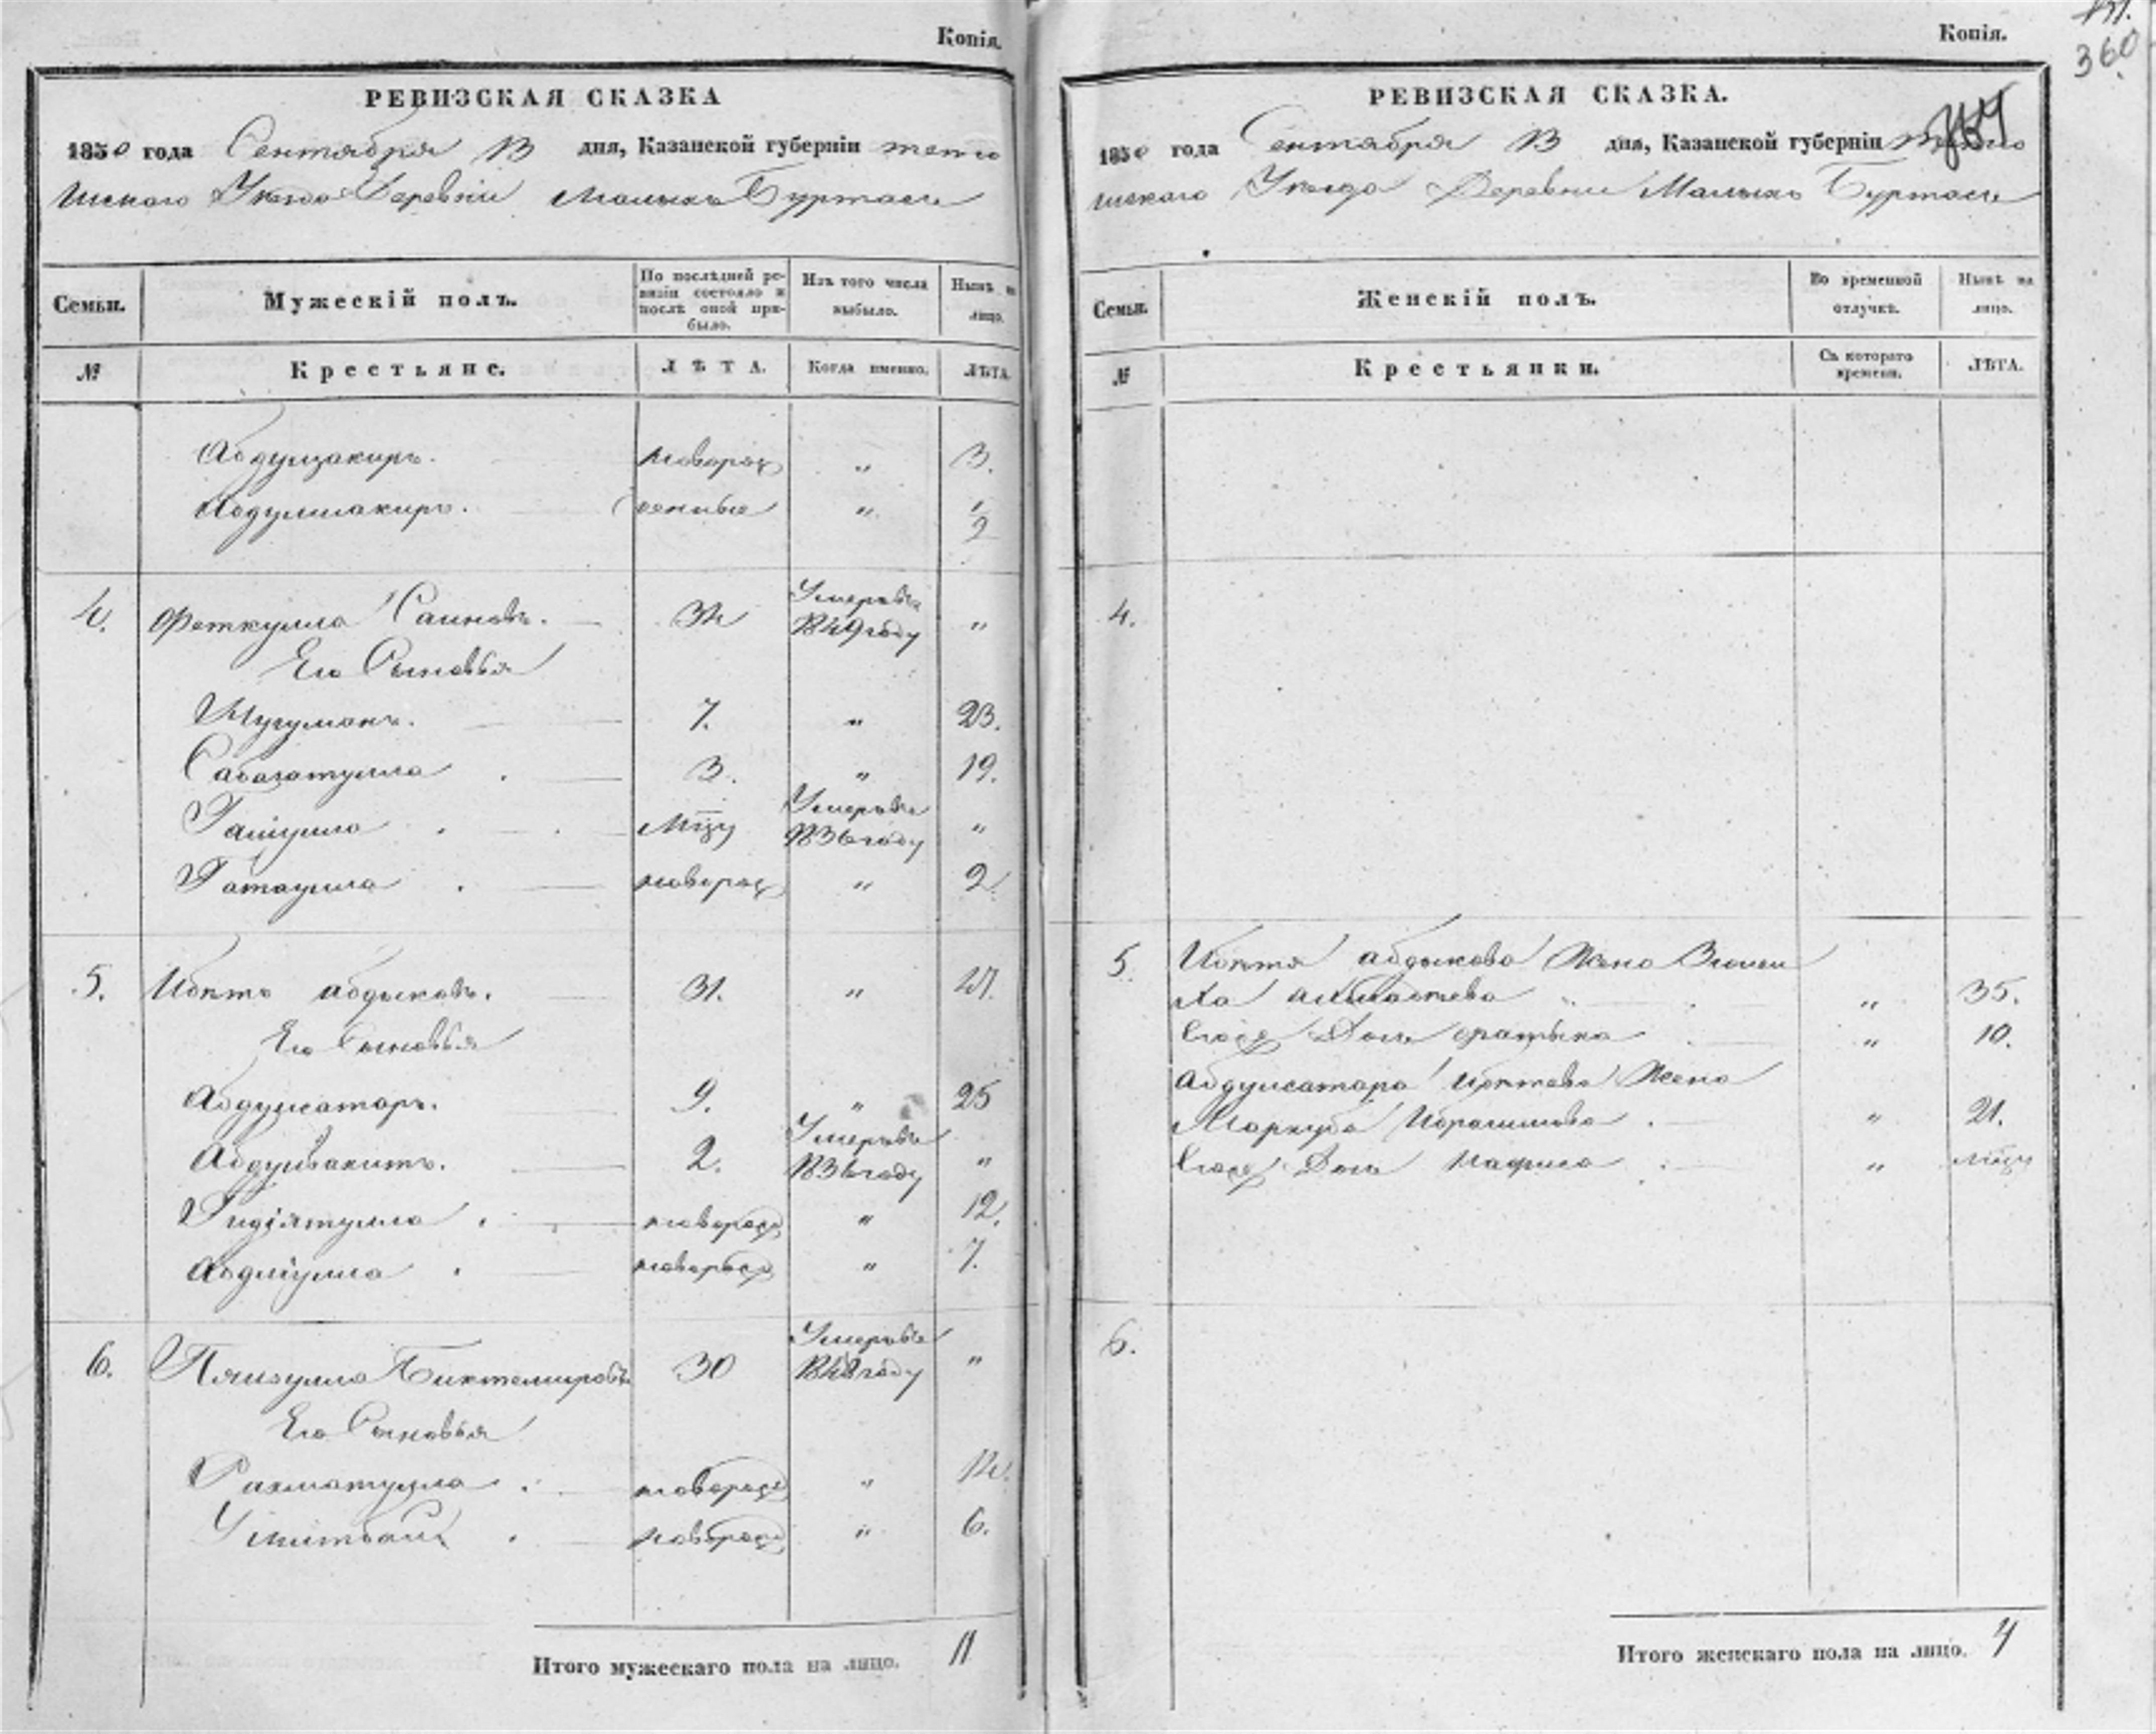 Копія.
РЕВИЗСКАЯ СКАЗКА
1850 года Сентября 13 дня, Казанской губерніи тетю
шскаго Уезда Деревни Малыхъ Буртасъ
Семьи.
Мужескій полъ.
По послѣдней ре-
визіи состояло и
послѣ оной при-
было.
Изъ того числа
выбыло.
Нынѣ на
лицо.
№
Крестьяне.
ЛѢТА.
Когда именно.
ЛѢТА.
Абдулзакиръ. новорож " 3.
Абдулшакиръ. денные " 1/2
4. Феткулла Саиновъ. 34 Умеръ въ 1849 году "
Его Сыновья
Нугуманъ. 7. " 23.
Сабагатулла 3. " 19.
Умеръ въ
мцу 1836 году "
Гатаулла новорож " 2
5. Ибетъ Абдыковъ. 31. " 47.
Его Сыновья
Абдулсатаръ. 9. " 25
Абдулвакитъ. 2. Умеръ въ 1836 году "
Гидіятулла новорож " 12.
новорож " 7.
6. Биктемировъ 30 Умеръ въ 1848 году "
Его Сыновья
Рахматулла новорож " 14.
новорож " 6.
Итого мужескаго пола на лицо. 11
Копія.
360
РЕВИЗСКАЯ СКАЗКА.
1850 года Сентября 13 дня, Казанской губерніи тетю
шскаго Уезда Деревни Малыхъ Буртасъ
Семьи.
Женскій полъ.
Во временной
отлучкѣ.
Нынѣ на
лицо.
№
Крестьянки.
Съ котораго
времени.
ЛѢТА.
4.
5. Абдыкова Жена
" 35.
Дочь Фатыха " 10.
Абдулсатара Жена
Маркуба Ибрагимова " 21.
Дочь Нафиса " мцу
6.
Итого женскаго пола на лицо. 4